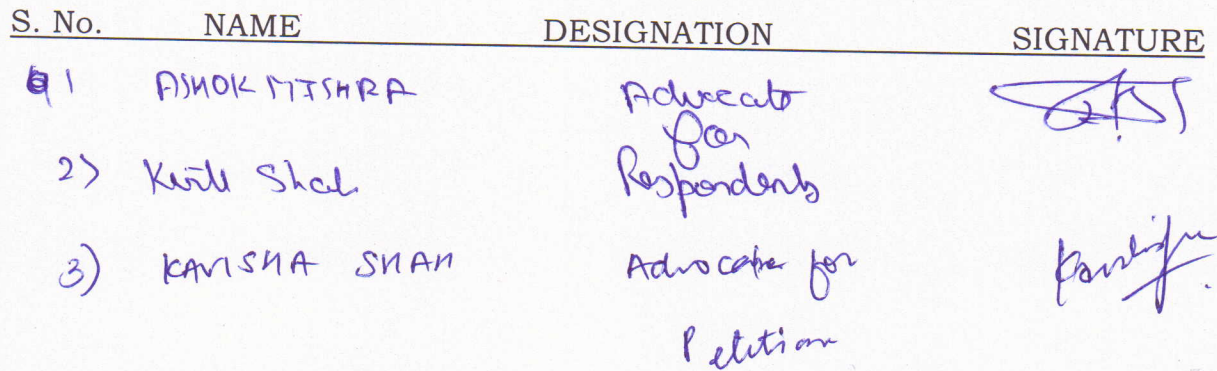 S. No. NAME DESIGNATION SIGNATURE
1 ASHOK MISHRA Advocate
for
2) Shah Respondents
3) KAVISHA SHAH Advocate for
Petition